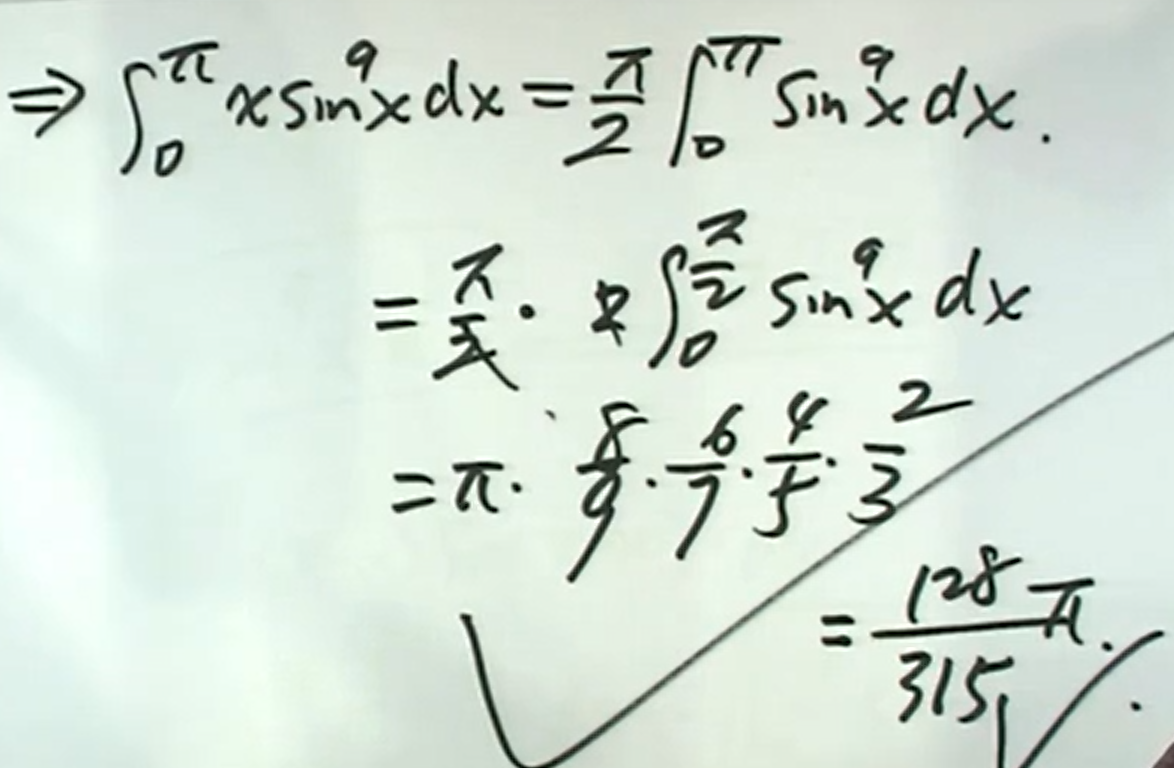 ⇒ ∫₀^π x sin⁹x dx = π/2 ∫₀^π sin⁹x dx.
= π/2 · 2 ∫₀^(π/2) sin⁹x dx
= π · 8/9 · 6/7 · 4/5 · 2/3
= 128/315 π.